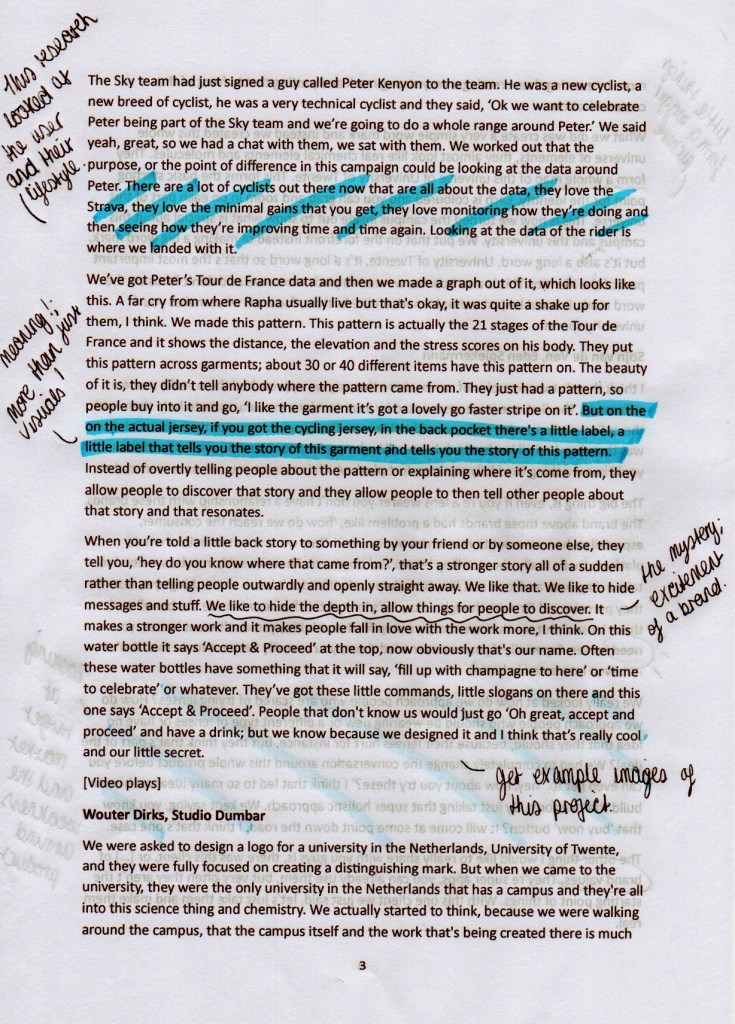 this research
looked at
the user
and their
lifestyle.
The Sky team had just signed a guy called Peter Kenyon to the team. He was a new cyclist, a
new breed of cyclist, he was a very technical cyclist and they said, 'Ok we want to celebrate
Peter being part of the Sky team and we're going to do a whole range around Peter.' We said
yeah, great, so we had a chat with them, we sat with them. We worked out that the
purpose, or the point of difference in this campaign could be looking at the data around
Peter. There are a lot of cyclists out there now that are all about the data, they love the
Strava, they love the minimal gains that you get, they love monitoring how they're doing and
then seeing how they're improving time and time again. Looking at the data of the rider is
where we landed with it.
meaning!;
more than just
visuals!
We've got Peter's Tour de France data and then we made a graph out of it, which looks like
this. A far cry from where Rapha usually live but that's okay, it was quite a shake up for
them, I think. We made this pattern. This pattern is actually the 21 stages of the Tour de
France and it shows the distance, the elevation and the stress scores on his body. They put
this pattern across garments; about 30 or 40 different items have this pattern on. The beauty
of it is, they didn't tell anybody where the pattern came from. They just had a pattern, so
people buy into it and go, 'I like the garment it's got a lovely go faster stripe on it'. But on the
on the actual jersey, if you got the cycling jersey, in the back pocket there's a little label, a
little label that tells you the story of this garment and tells you the story of this pattern.
Instead of overtly telling people about the pattern or explaining where it's come from, they
allow people to discover that story and they allow people to then tell other people about
that story and that resonates.
When you're told a little back story to something by your friend or by someone else, they
tell you, 'hey do you know where that came from?', that's a stronger story all of a sudden
rather than telling people outwardly and openly straight away. We like that. We like to hide
messages and stuff. We like to hide the depth in, allow things for people to discover. It
makes a stronger work and it makes people fall in love with the work more, I think. On this
water bottle it says 'Accept & Proceed' at the top, now obviously that's our name. Often
these water bottles have something that it will say, 'fill up with champagne to here' or 'time
to celebrate' or whatever. They've got these little commands, little slogans on there and this
one says 'Accept & Proceed'. People that don't know us would just go 'Oh great, accept and
proceed' and have a drink; but we know because we designed it and I think that's really cool
and our little secret.
the mystery;
excitement
of a brand.
get example images of
this project.
[Video plays]
Wouter Dirks, Studio Dumbar
We were asked to design a logo for a university in the Netherlands, University of Twente,
and they were fully focused on creating a distinguishing mark. But when we came to the
university, they were the only university in the Netherlands that has a campus and they're all
into this science thing and chemistry. We actually started to think, because we were walking
around the campus, that the campus itself and the work that's being created there is much
3